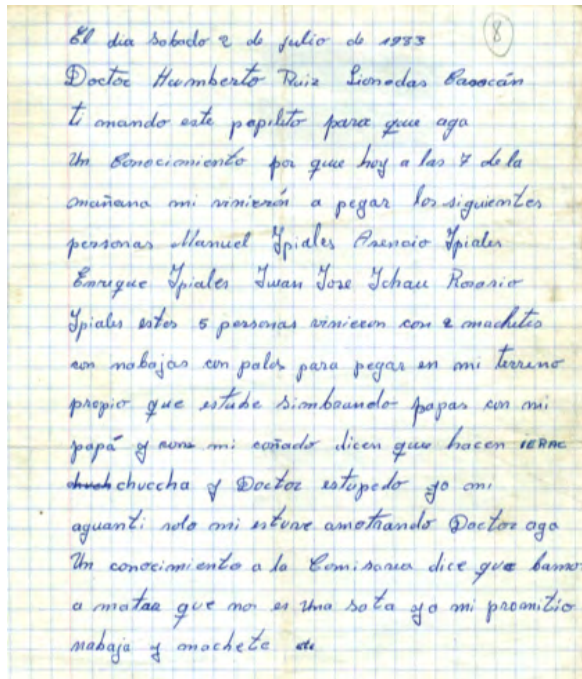 8
El dia sabado 2 de julio de 1983
Doctor Humberto Ruiz Lionedas Basacán
ti mando este papilito para que aga
Un Conocimiento por que hoy a las 7 de la
mañana mi vinierón a pegar los siguientes
personas Manuel Ypiales Arsencio Ypiales
Enrique Ypiales Juan Jose Ichau Rosario
Ypiales estos 5 personas vinieron con 2 machetis
con nabajas con palos para pegar en mi terreno
propio que estube simbaundo papas con mi
papá y con mi coñado dicen que hacen IERAC
chuccha y Doctor estupedo yo mi
aguanti solo mi estuve amotrando Doctor aga
Un conocimiento a la Comisaria dice que bamo
a matar que nos es una sota yo mi promitio
nabaja y machete